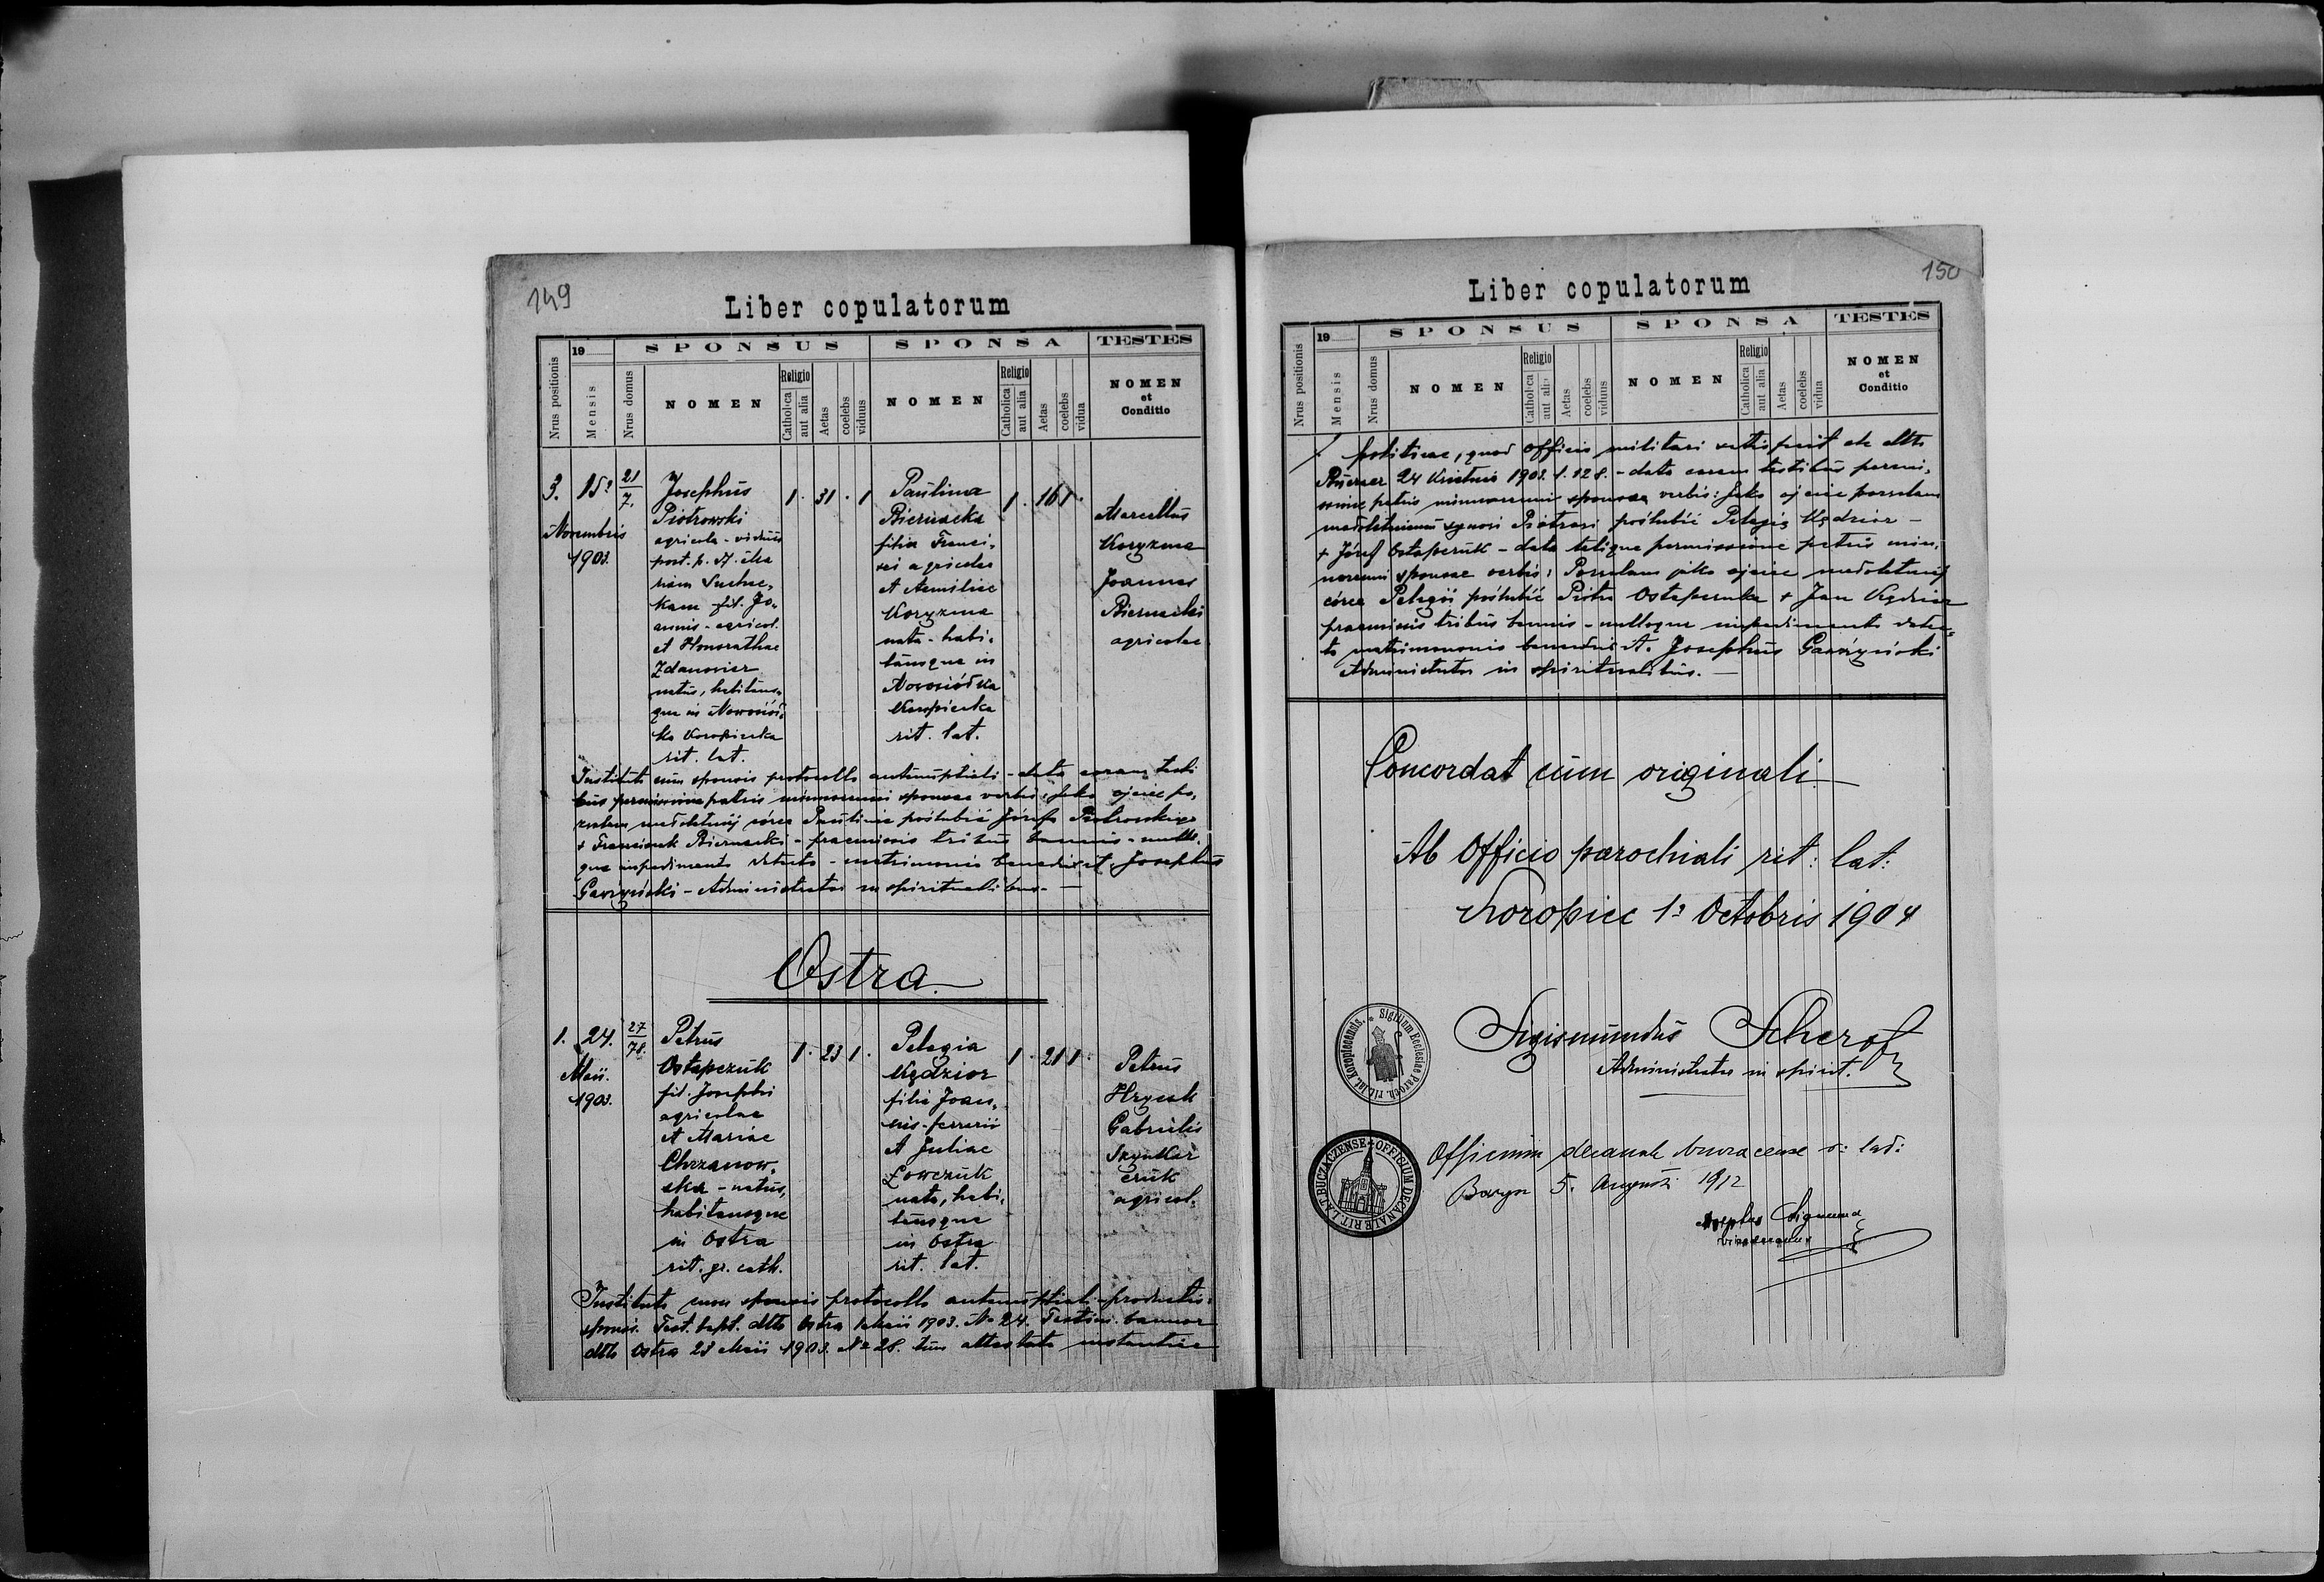 149
Liber copulatorum
Nrus positionis
19
Mensis
Nrus domus
SPONSUS
NOMEN
Religio
Catholica
aut alia
Aetas
coelebs
viduus
SPONSA
NOMEN
Religio
Catholica
aut alia
Aetas
coelebs
vidua
TESTES
NOMEN
et
Conditio
3. 15
Novembris
1903.
21
7.
Josephus
Piotrowski
agricola - viduus
post. p. d. Ma
riam Suchec,
kam fil. Jo,
annis - agricol.
et Honorathae
Zdanowicz
natus, habitans,
que in Nowosiół,
ka Koropiecka
rit. lat.
1. 31. 1
Paulina
Biernacka
filia Franci,
sci agricolae
et Aemiliae
Koryzma
nata - habi,
tansque in
Nowosiółka
Koropiecka
rit. lat.
1. 16 1.
Marcellus
Koryzma
Joannes
Biernacki
agricolae
Instituto cum sponsis protocollo antenuptiali - data coram testi
bus permissione patris minorennis sponsae verbis: Jako ojciec po,
zwalam małoletniej córce Paulinie poślubić Józefa Piotrowskiego
+ Franciszek Biernacki - praemissis tribus bannis - nullo,
que impedimento detecto - matrimonio benedixit Josephus
Gawrysiński - Administrator in spiritualibus. —
Ostra
1. 24.
Maii.
1903.
27
78.
Petrus
Ostapczuk
fil. Josephi
agricolae
et Mariae
Chrzanow,
ska - natus,
habitansque
in Ostra
rit. gr. cath.
1. 23 1.
Pelagia
Kędzior
filia Joan,
nis - ferrarii
et Juliae
Łowczuk
nata, habi,
tansque
in Ostra
rit. lat.
1. 21 1.
Petrus
Hrycak
Gabrielis
czuk
agricol.
Instituto cum sponsis protocollo antenuptiali - productis:
sponsi. Test. bapt. dtto Ostra Maii 1903. No 24. Testim. bannor
dtto Ostra 23 Maii 1903. No 28. tum attestato instantiae
150
Liber copulatorum
Nrus positionis
19
Mensis
Nrus domus
SPONSUS
NOMEN
Religio
Catholica
aut alia
Aetas
coelebs
viduus
SPONSA
NOMEN
Religio
Catholica
aut alia
Aetas
coelebs
vidua
TESTES
NOMEN
et
Conditio
politicae, quod officio militari satisfecit de dtto
24 1903. l. 128. - data coram testibus permis,
sione patris minorennis sponsi verbis: Jako ojciec pozwalam
małoletniemu synowi Piotrowi poślubić Pelagię Kędzior -
+ Józef Ostapczuk - data tetique permissione patris mino,
rennis sponsae verbis: Pozwalam jako ojciec małoletniej
córce Pelagii poślubić Piotra Ostapczuka + Jan Kędzior
praemissis tribus bannis - nulloque impedimento detec,
to matrimonio benedixit. Josephus Gawrysiński
Administrator in spiritualibus. —
Concordat cum originali
Ab Officio parochiali rit: lat:
Koropiec 1 Octobris 1904
Sigismundus Scherof
Administrator in spirit.
Sigillum Ecclesiae Paroch. rit. lat. Koropiecensis.
Officium decanale buczacense r: lat:
5. Augusti 1912
OFFISIUM DECANALE RIT. LAT. BUCZACZENSE
vicedecanus